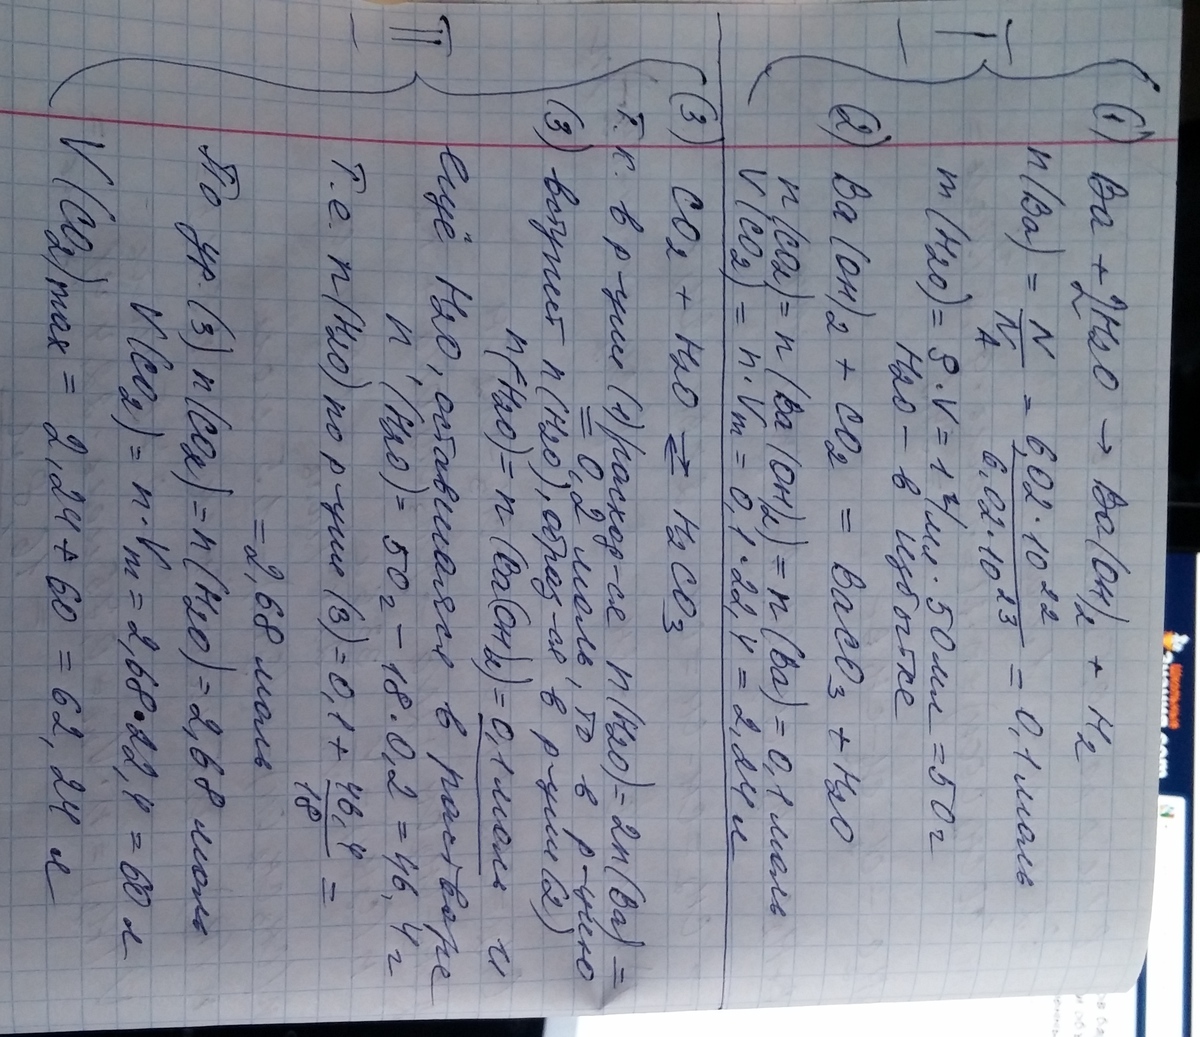 I
(1) Ba + 2H2O → Ba(OH)2 + H2
n(Ba) = N/NA = 6,02·10²²/6,02·10²³ = 0,1 моль
m(H2O) = ρ·V = 1 г/мл · 50мл = 50 г
H2O – в избытке
(2) Ba(OH)2 + CO2 = BaCO3 + H2O
n(CO2) = n(Ba(OH)2) = n(Ba) = 0,1 моль
V(CO2) = n·Vm = 0,1·22,4 = 2,24 л
II
(3) CO2 + H2O ⇄ H2CO3
Т.к. в р-ции (1) расход-ся n(H2O) = 2n(Ba) =
= 0,2 моль, то в р-цию
(3) вступит n(H2O), образ-ся в р-ции (2)
n(H2O) = n(Ba(OH)2) = 0,1 моль и
ещё H2O, оставшаяся в растворе
n'(H2O) = 50г – 18·0,2 = 46,4 г
Т.е. n(H2O) по р-ции (3) = 0,1 + 46,4/18 =
= 2,68 моль
По ур. (3) n(CO2) = n(H2O) = 2,68 моль
V(CO2) = n·Vm = 2,68·22,4 = 60 л
V(CO2)max = 2,24 + 60 = 62,24 л